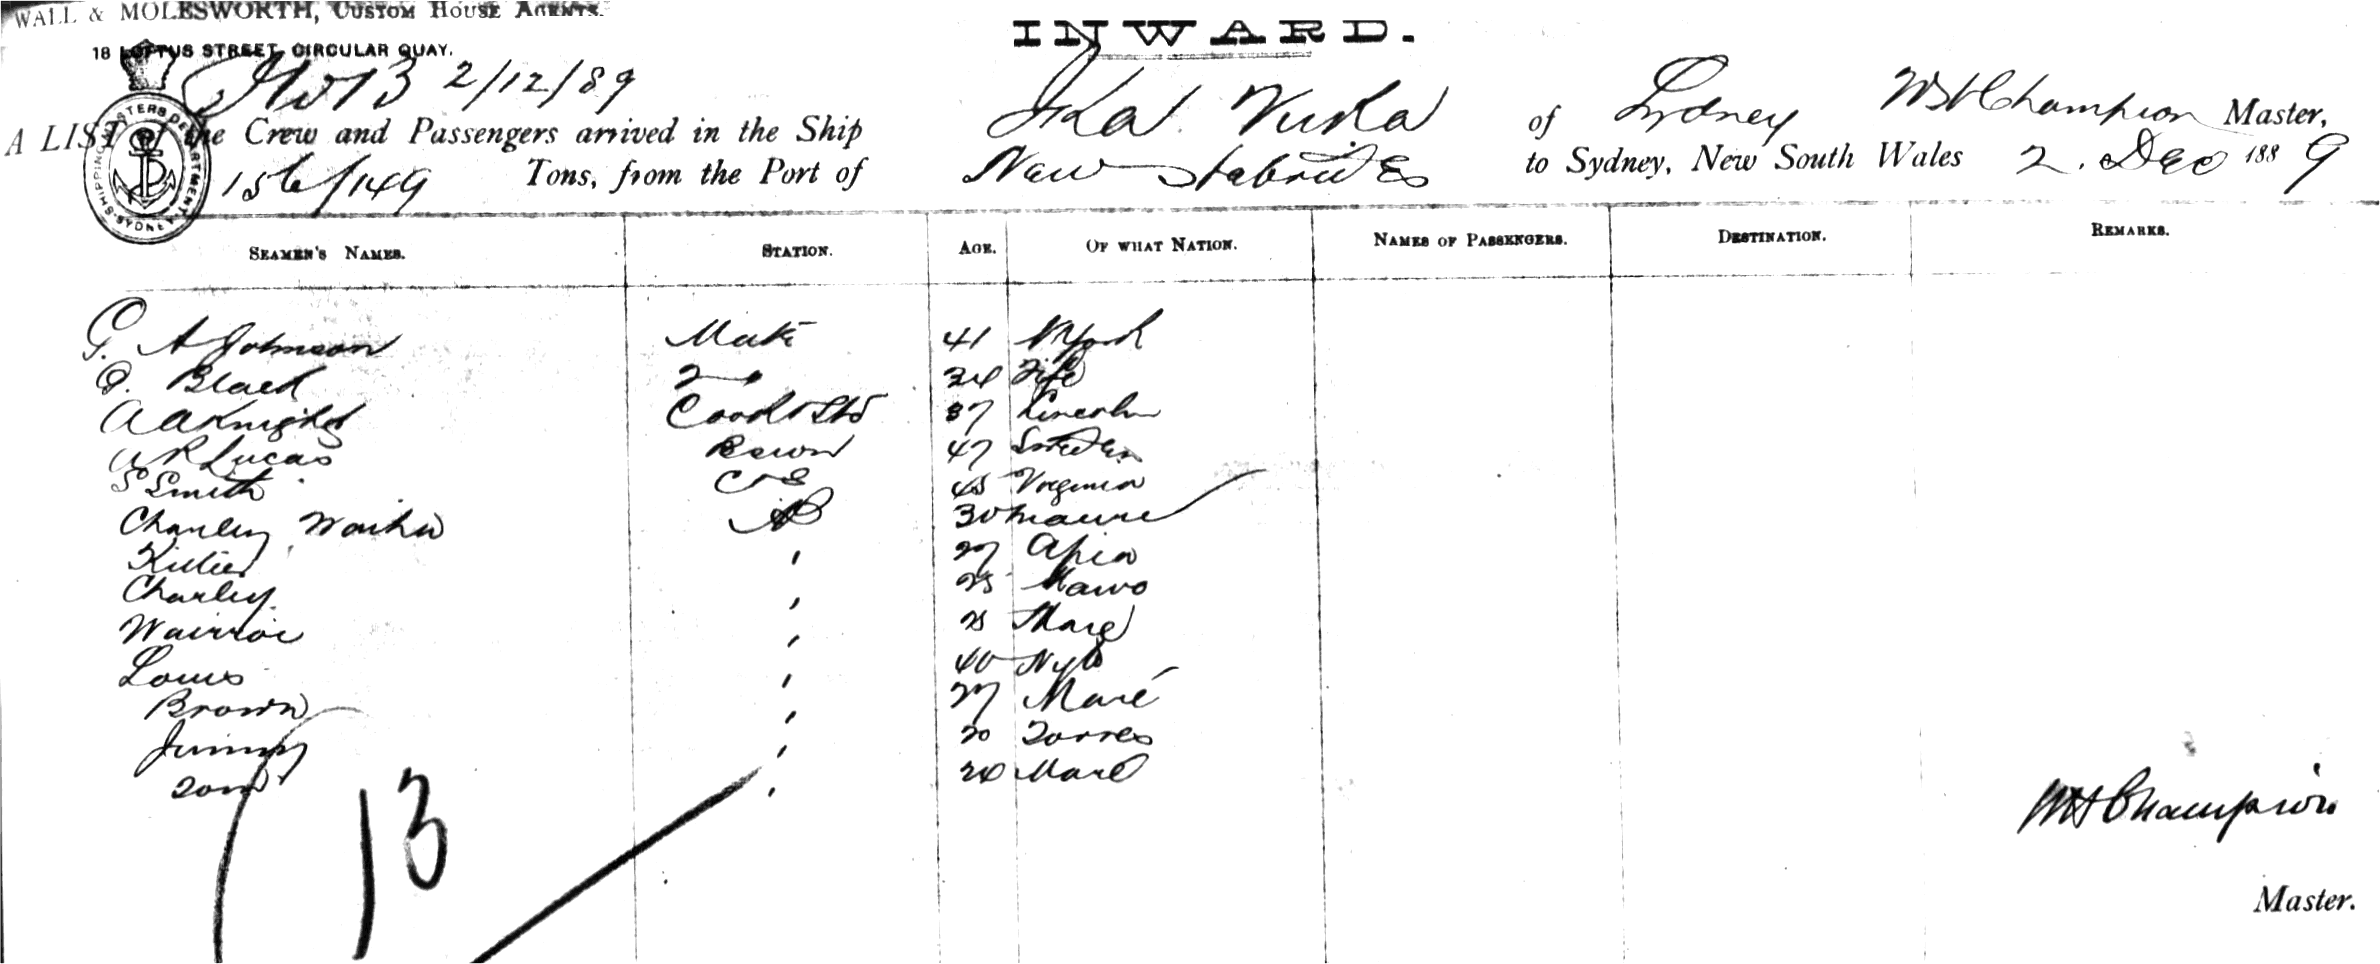 WALL & MOLESWORTH, CUSTOM HOUSE AGENTS.
18 LOFTUS STREET, CIRCULAR QUAY.
INWARD.
2/12/89
A LIST of the Crew and Passengers arrived in the Ship Ika Vuka of Sydney W H Champion Master,
156/149 Tons, from the Port of New Hebrides to Sydney, New South Wales 2. Dec 1889
SHIPPING MASTERS DEPARTMENT SYDNEY
SEAMEN'S NAMES. STATION. AGE. OF WHAT NATION. NAMES OF PASSENGERS. DESTINATION. REMARKS.
A Johnson Mate 41 N York
Black 2 34 Fife
A A Knight Cook & Std 37 Lincoln
A R Lucas Bswn 47 Sweden
S Smith 45 Virginia
Charley AB 30
' 27 Apia
Charley ' 25
' 25 Mare
Louis ' 40
Brown ' 27 Maré
Jimmy ' 20 Torres
Tom ' 24 Maré
13
W H Champion
Master.